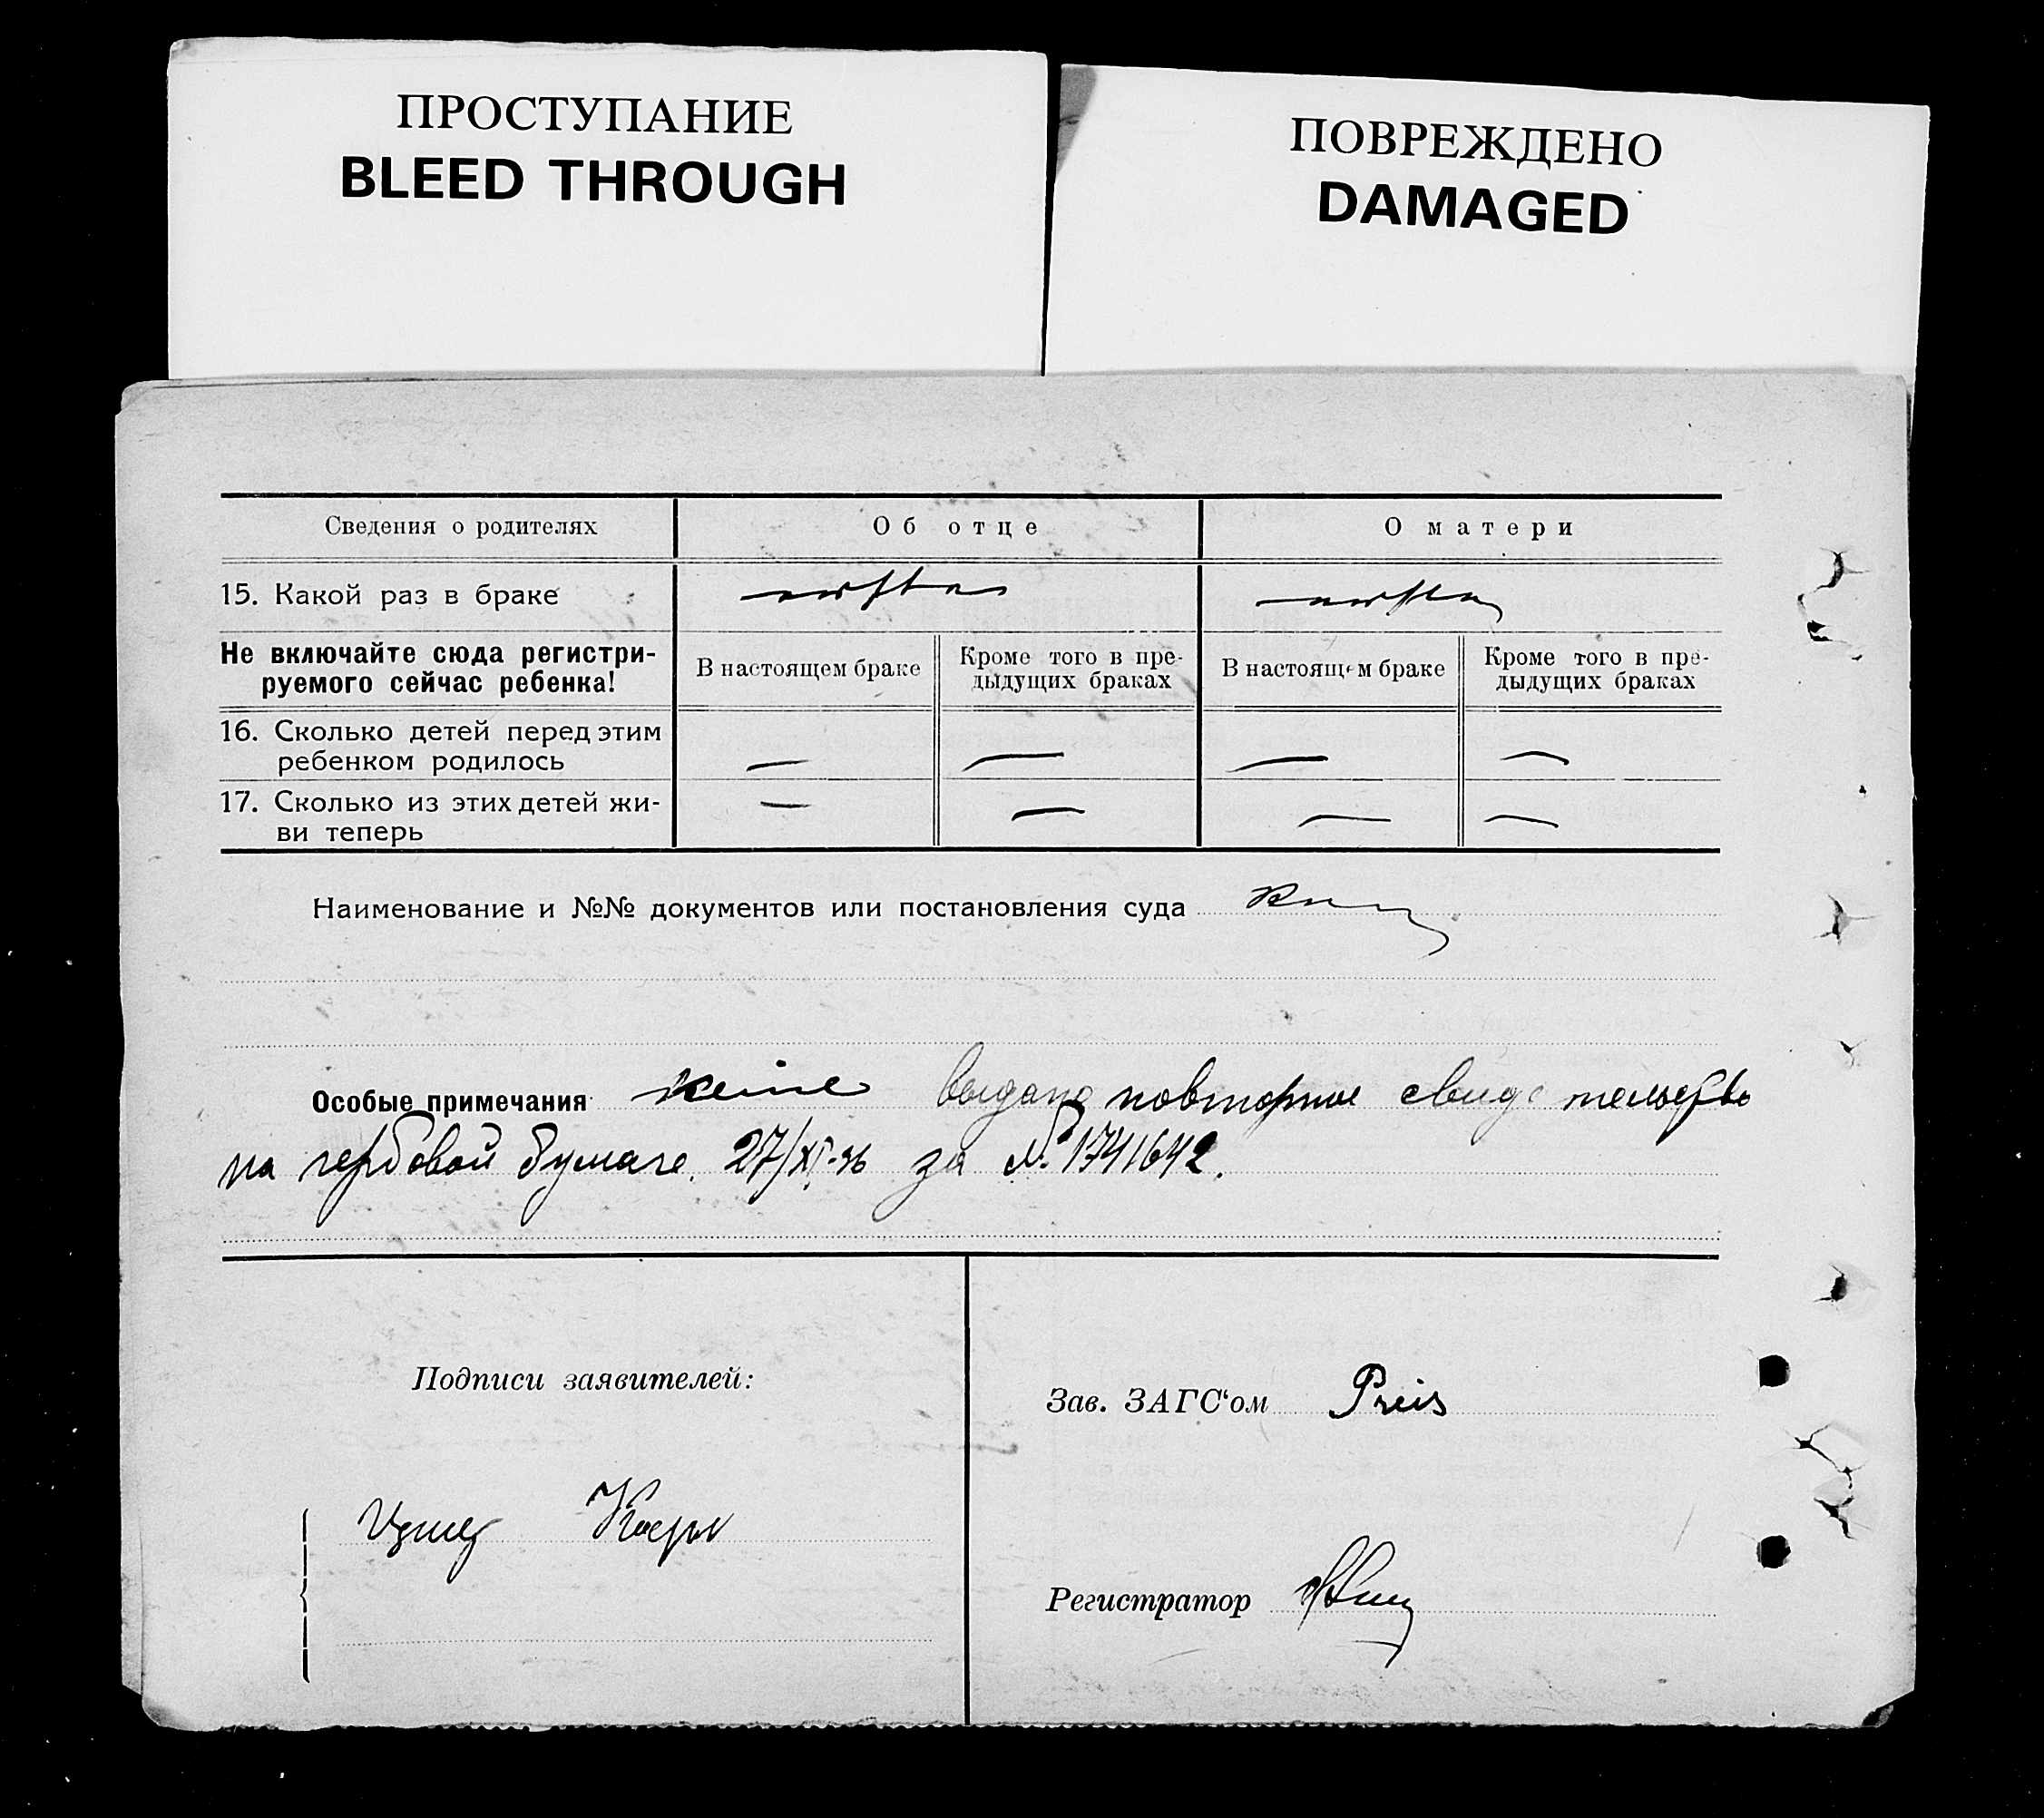 ПРОСТУПАНИЕ
BLEED THROUGH
ПОВРЕЖДЕНО
DAMAGED
Сведения о родителях
Об отце
О матери
15. Какой раз в браке
Не включайте сюда регистри-
руемого сейчас ребенка!
В настоящем браке
Кроме того в пре-
дыдущих браках
В настоящем браке
Кроме того в пре-
дыдущих браках
16. Сколько детей перед этим
ребенком родилось
— — — —
17. Сколько из этих детей жи-
ви теперь
— — — —
Наименование и №№ документов или постановления суда
Особые примечания keine выдано повторное свидетельство
на гербовой бумаге. 27/XI-36 за № 1741642.
Подписи заявителей:
Зав. ЗАГС‘ом Preis
Регистратор